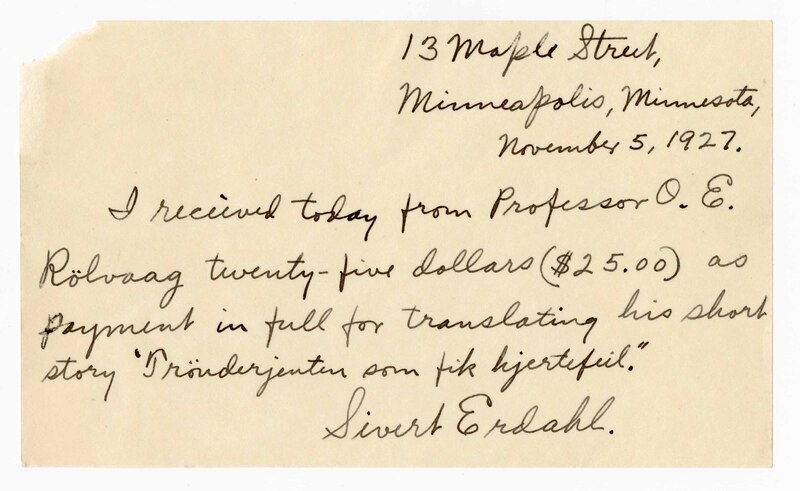 13 Maple Street,
Minneapolis, Minnesota,
November 5, 1927.
I received today from Professor O. E.
Rölvaag twenty-five dollars ($25.00) as
payment in full for translating his short
story "Trönderjenten som fik hjertefeil."
Sivert Erdahl.